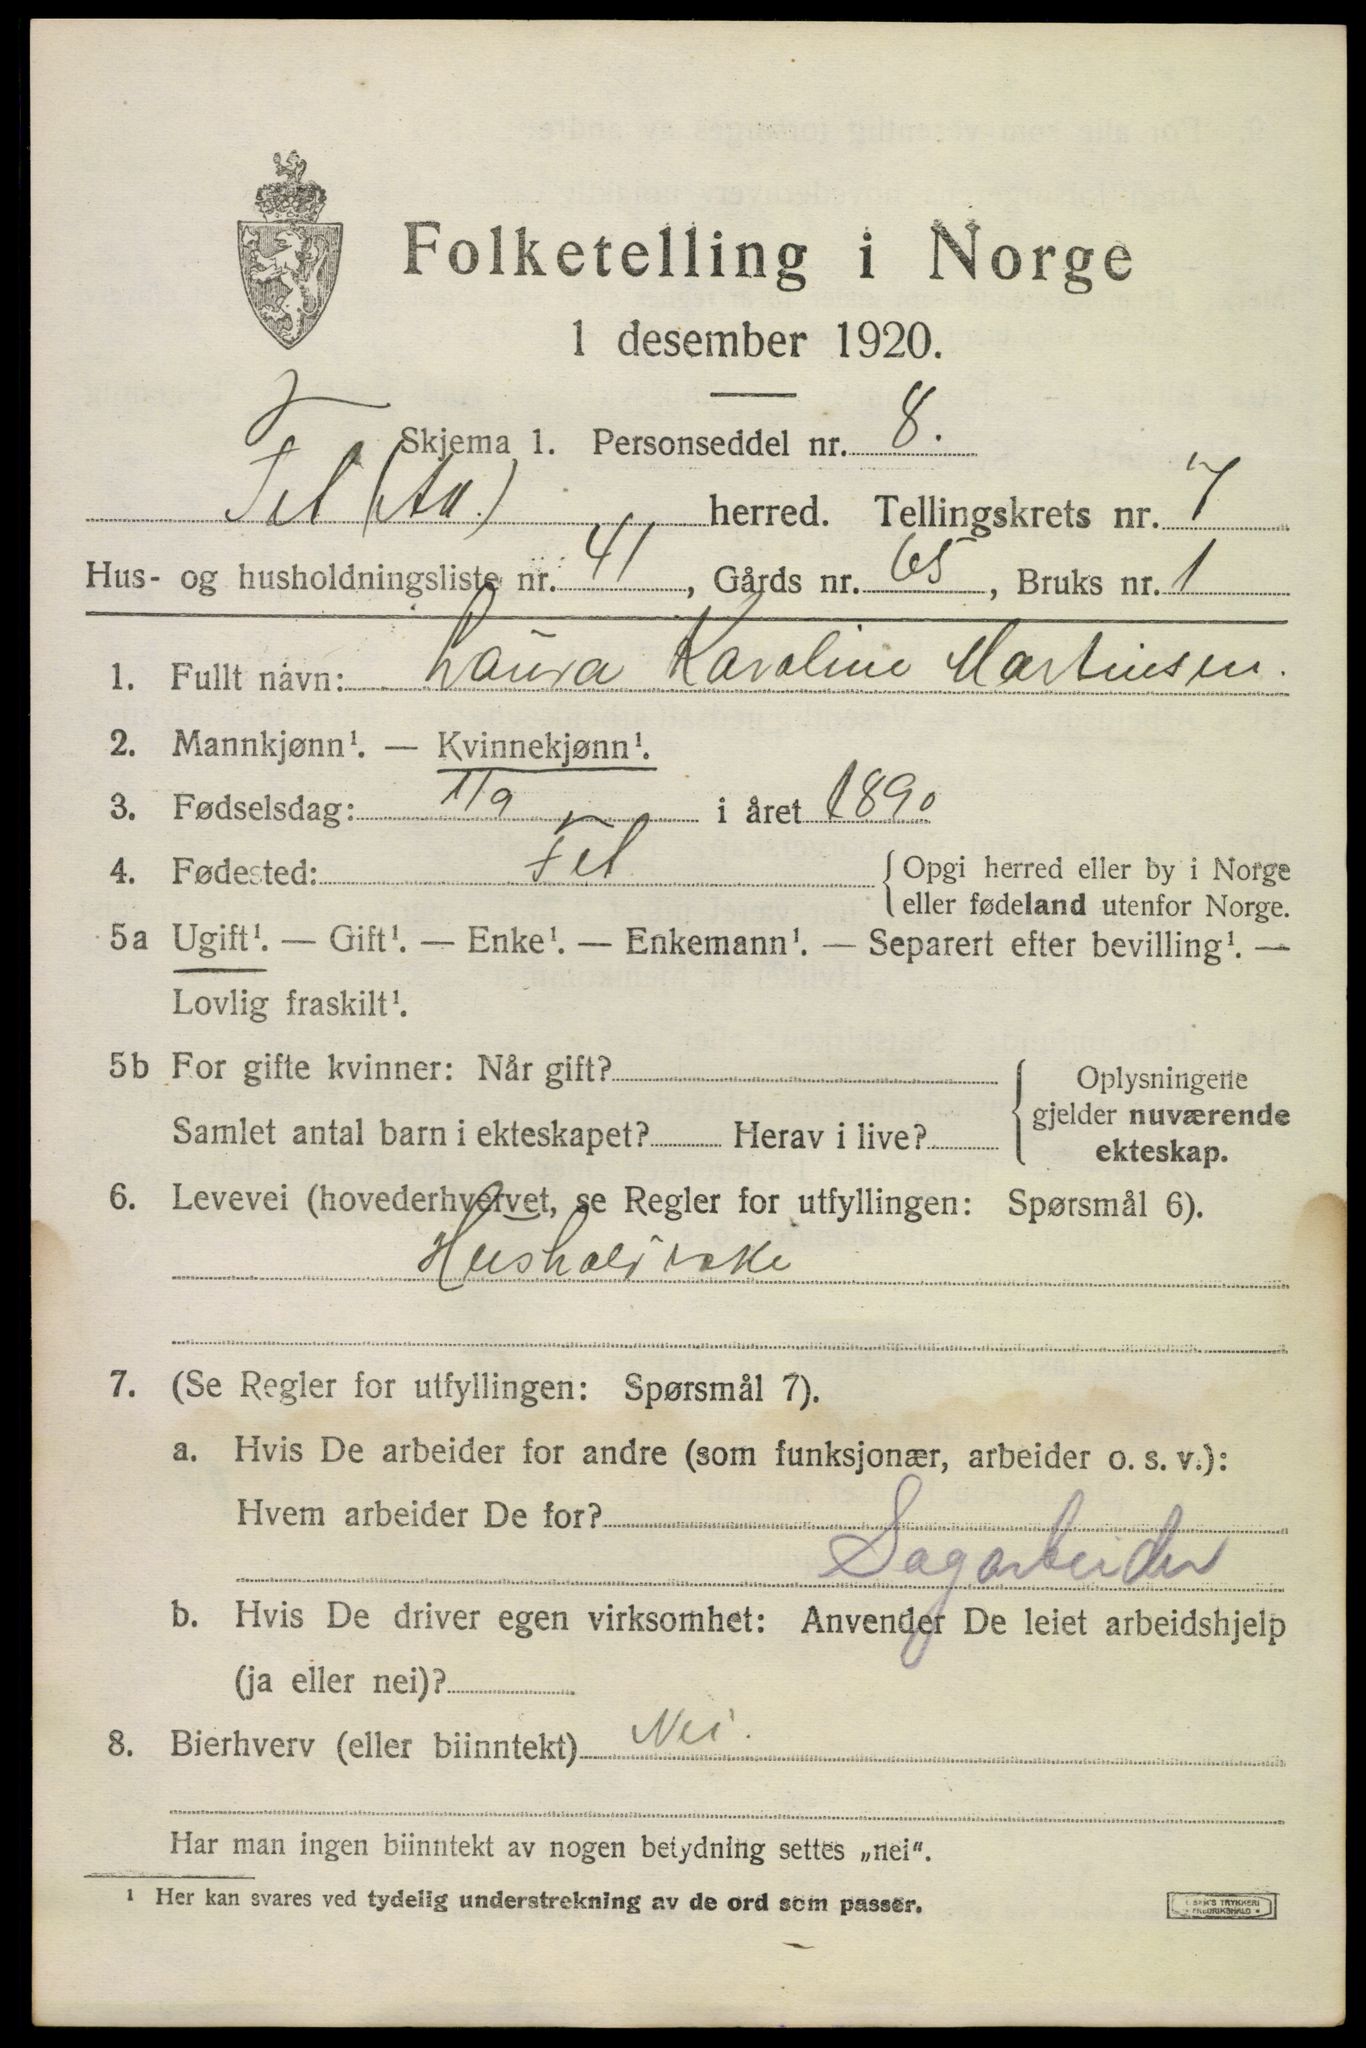 Folketelling i Norge
1 desember 1920.
Skjema 1. Personseddel nr. 8.
Fet (Ak.) herred. Tellingskrets nr. 7
Hus- og husholdningsliste nr. 41, Gårds nr. 65, Bruks nr. 1
1. Fullt navn: Laura Karoline Martinsen.
2. Mannkjønn¹. — Kvinnekjønn¹.
3. Fødselsdag: 1/9 i året 1890
4. Fødested: Fet {Opgi herred eller by i Norge
eller fødeland utenfor Norge.
5a Ugift¹. — Gift¹. — Enke¹. — Enkemann¹. — Separert efter bevilling¹. —
Lovlig fraskilt¹.
5b For gifte kvinner: Når gift?
Samlet antal barn i ekteskapet? Herav i live?
Oplysningene
gjelder nuværende
ekteskap.
6. Levevei (hovederhvervet, se Regler for utfyllingen: Spørsmål 6).
7. (Se Regler for utfyllingen: Spørsmål 7).
a. Hvis De arbeider for andre (som funksjonær, arbeider o. s. v.):
Hvem arbeider De for?
Sagarbeider
b. Hvis De driver egen virksomhet: Anvender De leiet arbeidshjelp
(ja eller nei)?
8. Bierhverv (eller biinntekt) Nei.
Har man ingen biinntekt av nogen betydning settes „nei“.
¹ Her kan svares ved tydelig understrekning av de ord som passer.
TRYKKERI
FREDRIKSHALD